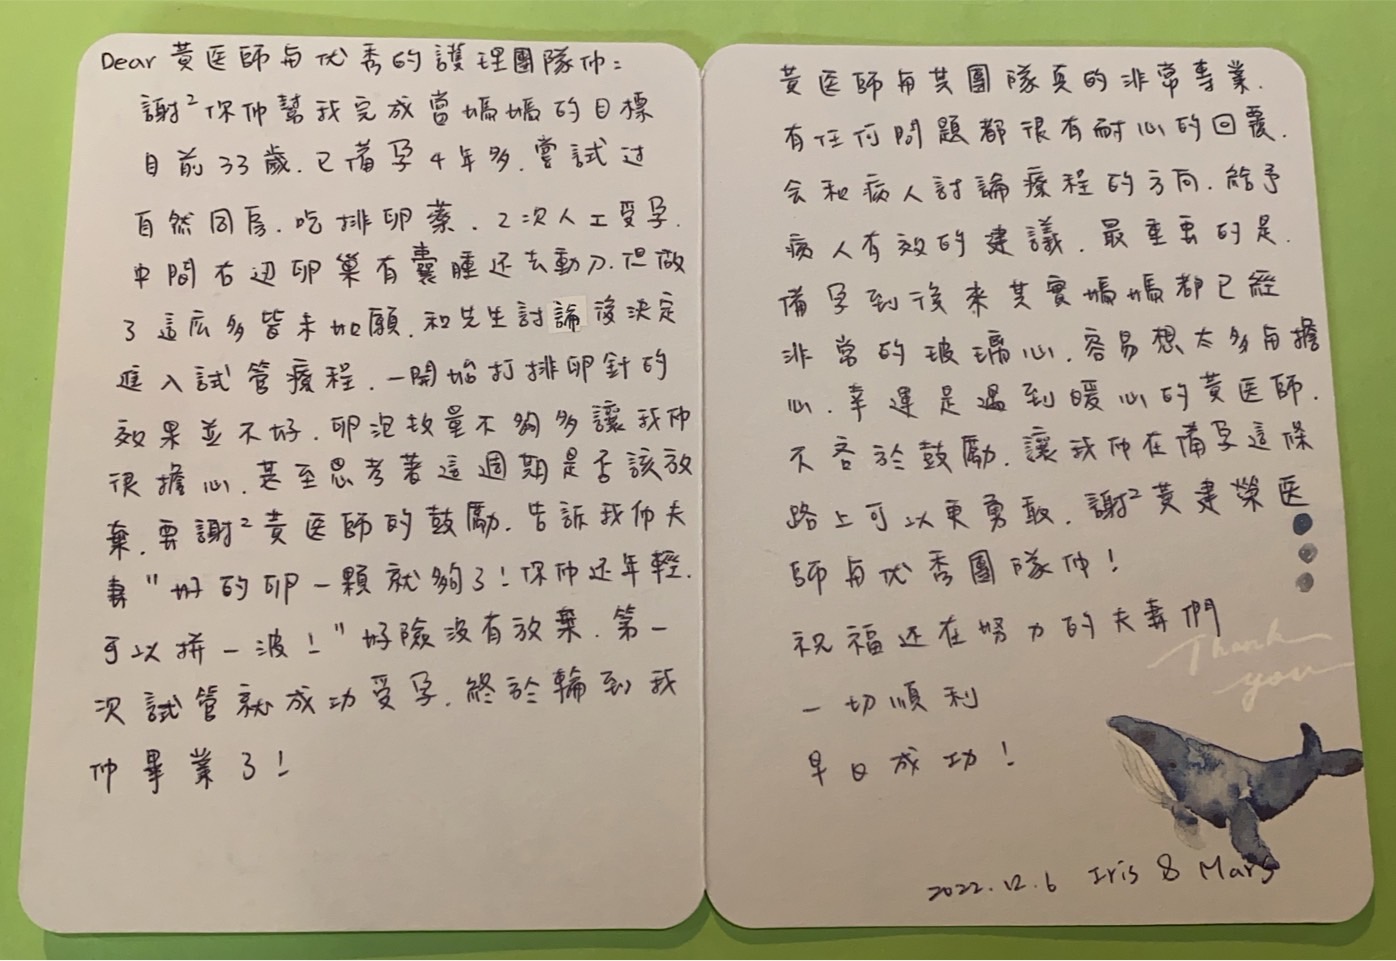 Dear 黃医師与优秀的護理團隊们:
謝²你们幫我完成當媽媽的目標
目前33歲.已備孕4年多.嘗試过
自然同房.吃排卵藥.2次人工受孕.
中間右边卵巢有囊腫还去動刀.但做
了這広多皆未如願.和先生討論後決定
進入試管療程.一開始打排卵針的
效果並不好.卵泡数量不夠多讓我们
很擔心.甚至思考著這週期是否該放
棄.要謝²黃医師的鼓励.告訴我们夫
妻"好的卵一顆就夠了!你们还年輕.
可以拼一波!"好險沒有放棄.第一
次試管就成功受孕.終於輪到我
们畢業了!
黃医師与其團隊真的非常專業.
有任何問題都很有耐心的回覆.
会和病人討論療程的方向.給予
病人有效的建議.最重要的是.
備孕到後來其實媽媽都已經
非常的玻璃心.容易想太多与擔
心.幸運是遇到暖心的黃医師.
不吝於鼓励.讓我们在備孕這條
路上可以更勇敢.謝²黃建榮医
師与优秀團隊们!
祝福还在努力的夫妻們
一切順利
早日成功!
Thank
you
2022.12.6 Iris & Mars